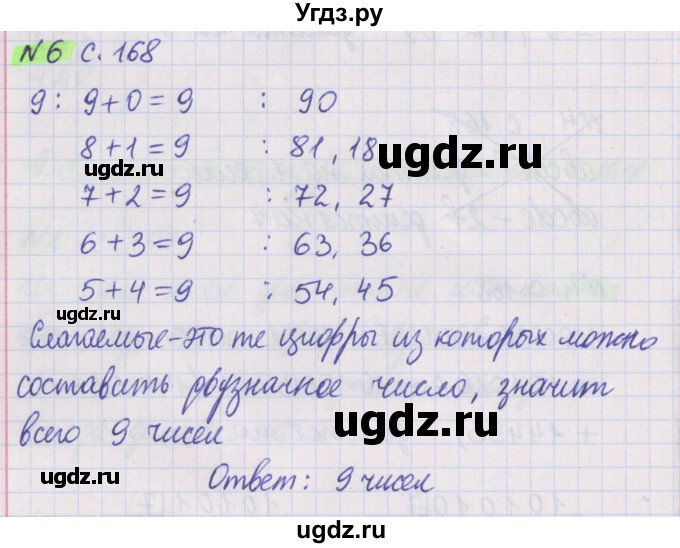 Угдз.ру
№6 с. 168
9: 9+0=9 : 90
8+1=9 : 81, 18
ugdz.ru
ugdz.ru
7+2=9 : 72, 27
6+3=9 : 63, 36
ugdz.ru
5+4=9 : 54, 45
Слагаемые-это те цифры из которых можно
составить двузначное число, значит
ugdz.ru
всего 9 чисел
ugdz.ru
Ответ: 9 чисел
ugdz.ru